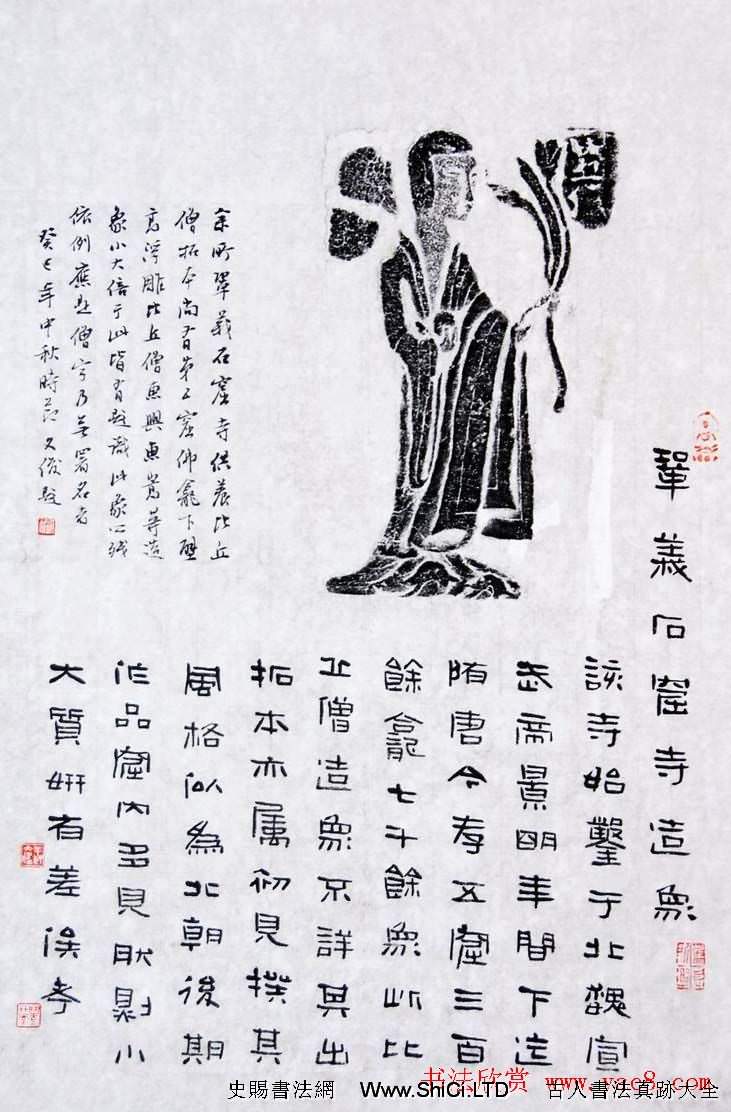 鞏義石窟寺造象
該寺始鑿于北魏宣
武帝景明年間下迄
隋唐今存五窟三百
餘龕七千餘象此比
丘僧造象不詳其出
拓本亦屬初見撲其
風格似為北朝後期
作品窟內多見耿剔小
大質姸有差俟考
余所鞏義石窟寺供養比丘
僧拓本尚有第五窟佛龕下壁
高浮雕比丘僧惠興惠嵩等造
象小大倍于此皆有題識此象
依例應是僧寧乃無署名者
癸巳年中秋時節 文俊題
书法欣赏 www.yac8.com
史賜書法網 Www.ShiCi.LTD 古人書法真跡大全